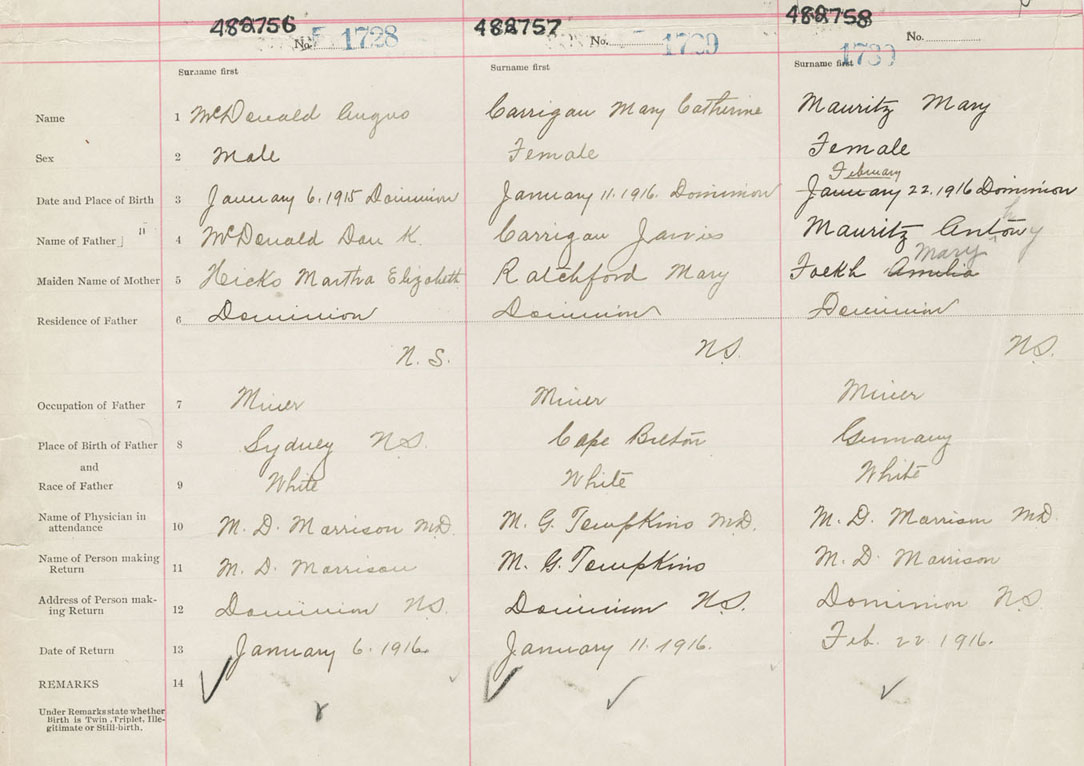 482756 482757 482758
No. 1728 No. 1729 No. 1730
Surname first Surname first Surname first
Name 1 McDonald Angus Carrigan Mary Catherine Mauritz Mary
Sex 2 Male Female Female
February
Date and Place of Birth 3 January 6. 1915 Dominion January 11. 1916. Dominion January 22. 1916 Dominion
Name of Father 4 McDonald Dan K. Carrigan James Mauritz Antony
Mary
Maiden Name of Mother 5 Hicks Martha Elizabeth Ratchford Mary Amelia
Residence of Father 6 Dominion Dominion Dominion
N.S. N.S. N.S.
Occupation of Father 7 Miner Miner Miner
Place of Birth of Father 8 Sydney N.S. Cape Breton Germany
and
Race of Father 9 White White White
Name of Physician in
attendance 10 M. D. Morrison M.D. M. G. Tompkins M.D. M. D. Morrison M.D.
Name of Person making
Return 11 M. D. Morrison M. G. Tompkins M. D. Morrison
Address of Person mak-
ing Return 12 Dominion N.S. Dominion N.S. Dominion N.S.
Date of Return 13 January 6. 1916. January 11. 1916. Feb. 22 1916.
REMARKS 14
Under Remarks state whether
Birth is Twin, Triplet, Ille-
gitimate or Still-birth.